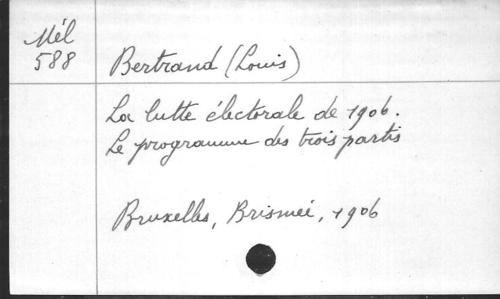 Mél
588
Bertrand (Louis)
La lutte électorale de 1906.
Le programme des trois partis
Bruxelles, Brismée, 1906